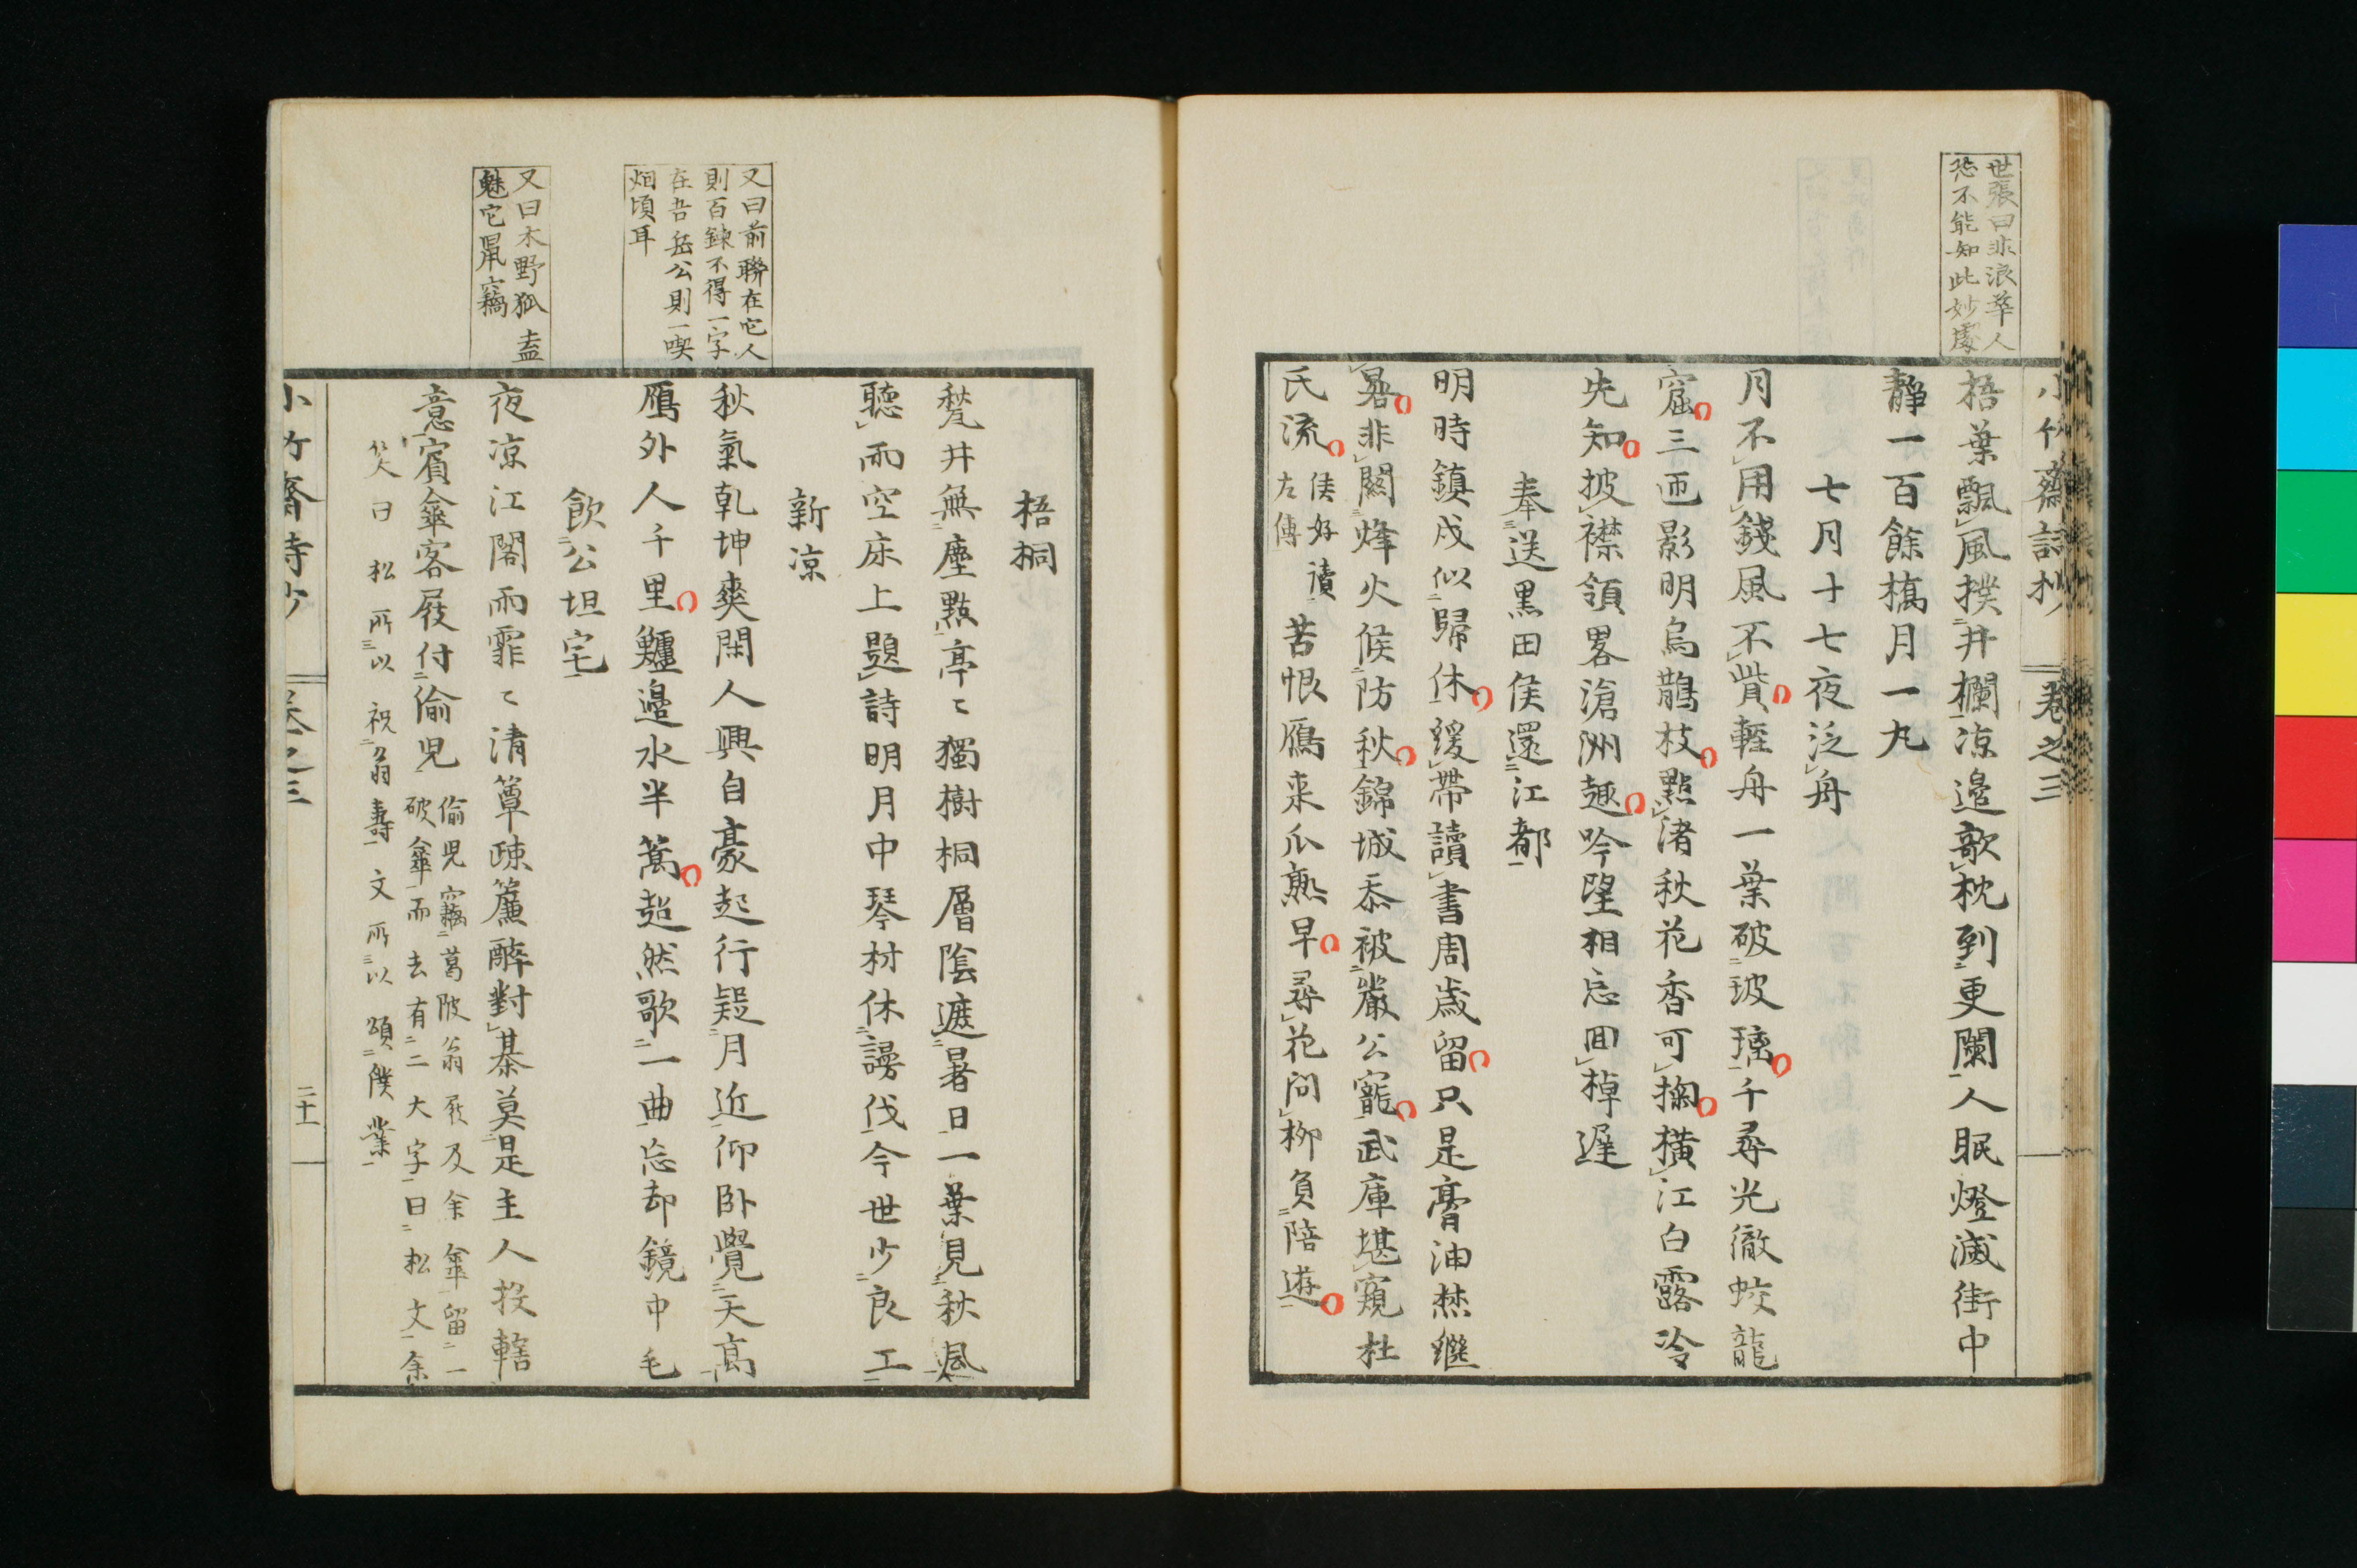 世張曰非浪華人
恐不能知此妙處
小竹齋詩抄 卷之三
梧葉飄風撲井欄涼邊欹枕到更闌人眠燈滅街中
靜一百餘橋月一丸
七月十七夜泛舟
月不用錢風不貲輕舟一葉破玻璃千尋光徹蛟龍
窟三匝影明烏鵲枝點渚秋花香可掬橫江白露冷
先知披襟領畧滄洲趣吟望相忘回棹遲
奉送黑田侯還江都
明時鎮戍似歸休緩帶讀書周歲留只是膏油焚繼
晷非關烽火候防秋錦城忝被嚴公寵武庫堪窺杜
氏流
侯好讀
左傳
苦恨鴈來瓜熟早尋花問柳負陪遊
又曰前聯在它人
則百鍊不得一字
在吾岳公則一喫
烟頃耳
又曰木野狐盍
魅它鼠竊
梧桐
甃井無塵點亭〻獨樹桐層陰遮暑日一葉見秋風
聽雨空床上題詩明月中琴材休謾伐今世少良工
新涼
秋氣乾坤爽閑人興自豪起行疑月近仰臥覺天高
鴈外人千里鱸邊水半篙超然歌一曲忘却鏡中毛
飲公坦宅
夜涼江閣雨霏〻清簟疎簾醉對棊莫是主人投轄
意賓傘客屐付偷兒
偷兒竊葛陂翁屐及余傘留一
破傘而去有二大字曰松文余
笑曰松所以祝翁壽文所以頌僕業
小竹齋詩抄 卷之三 二十一